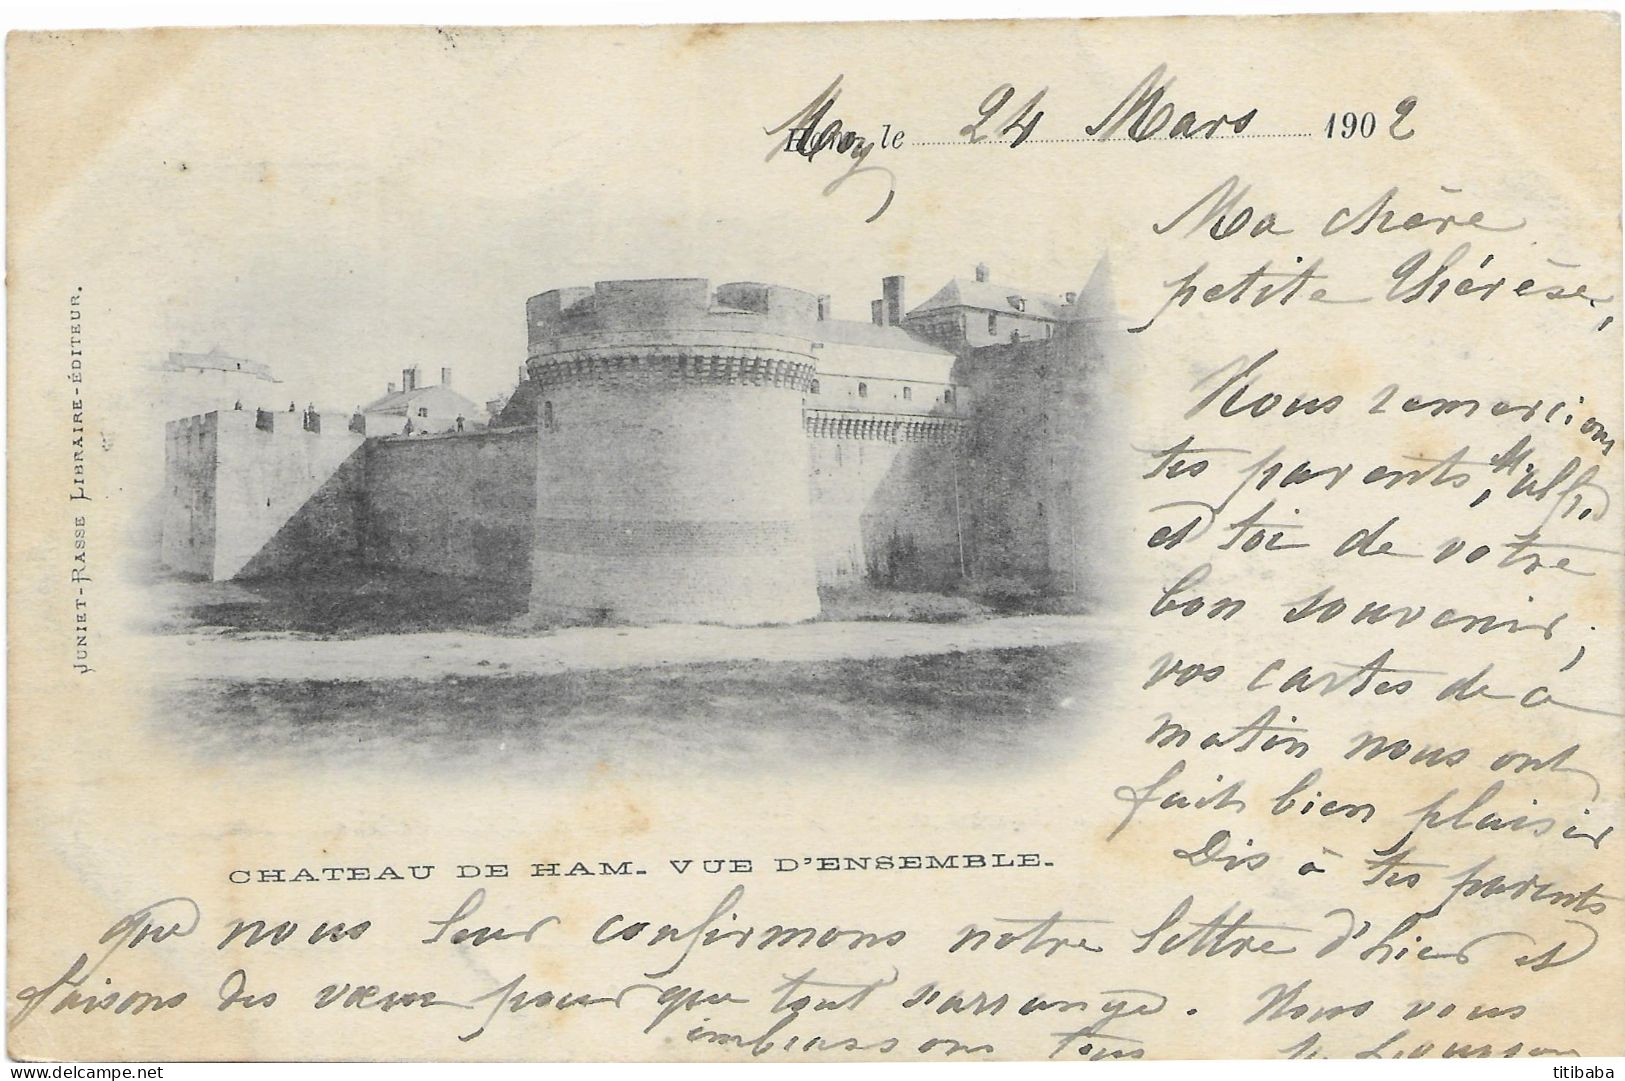 May, le 24 Mars 1902
Ma chère
petite Thérèse,
Nous remercions
tes parents, M. Alf.
et toi de votre
bon souvenir;
vos cartes de ce
matin nous ont
fait bien plaisir
Dis à tes parents
que nous leur confirmons notre lettre d'hier et
faisons des vœux pour que tout s'arrange. Nous vous
embrassons tous
JUNIET-RASSE LIBRAIRE-ÉDITEUR.
CHATEAU DE HAM. VUE D'ENSEMBLE.
delcampe.net
titibaba